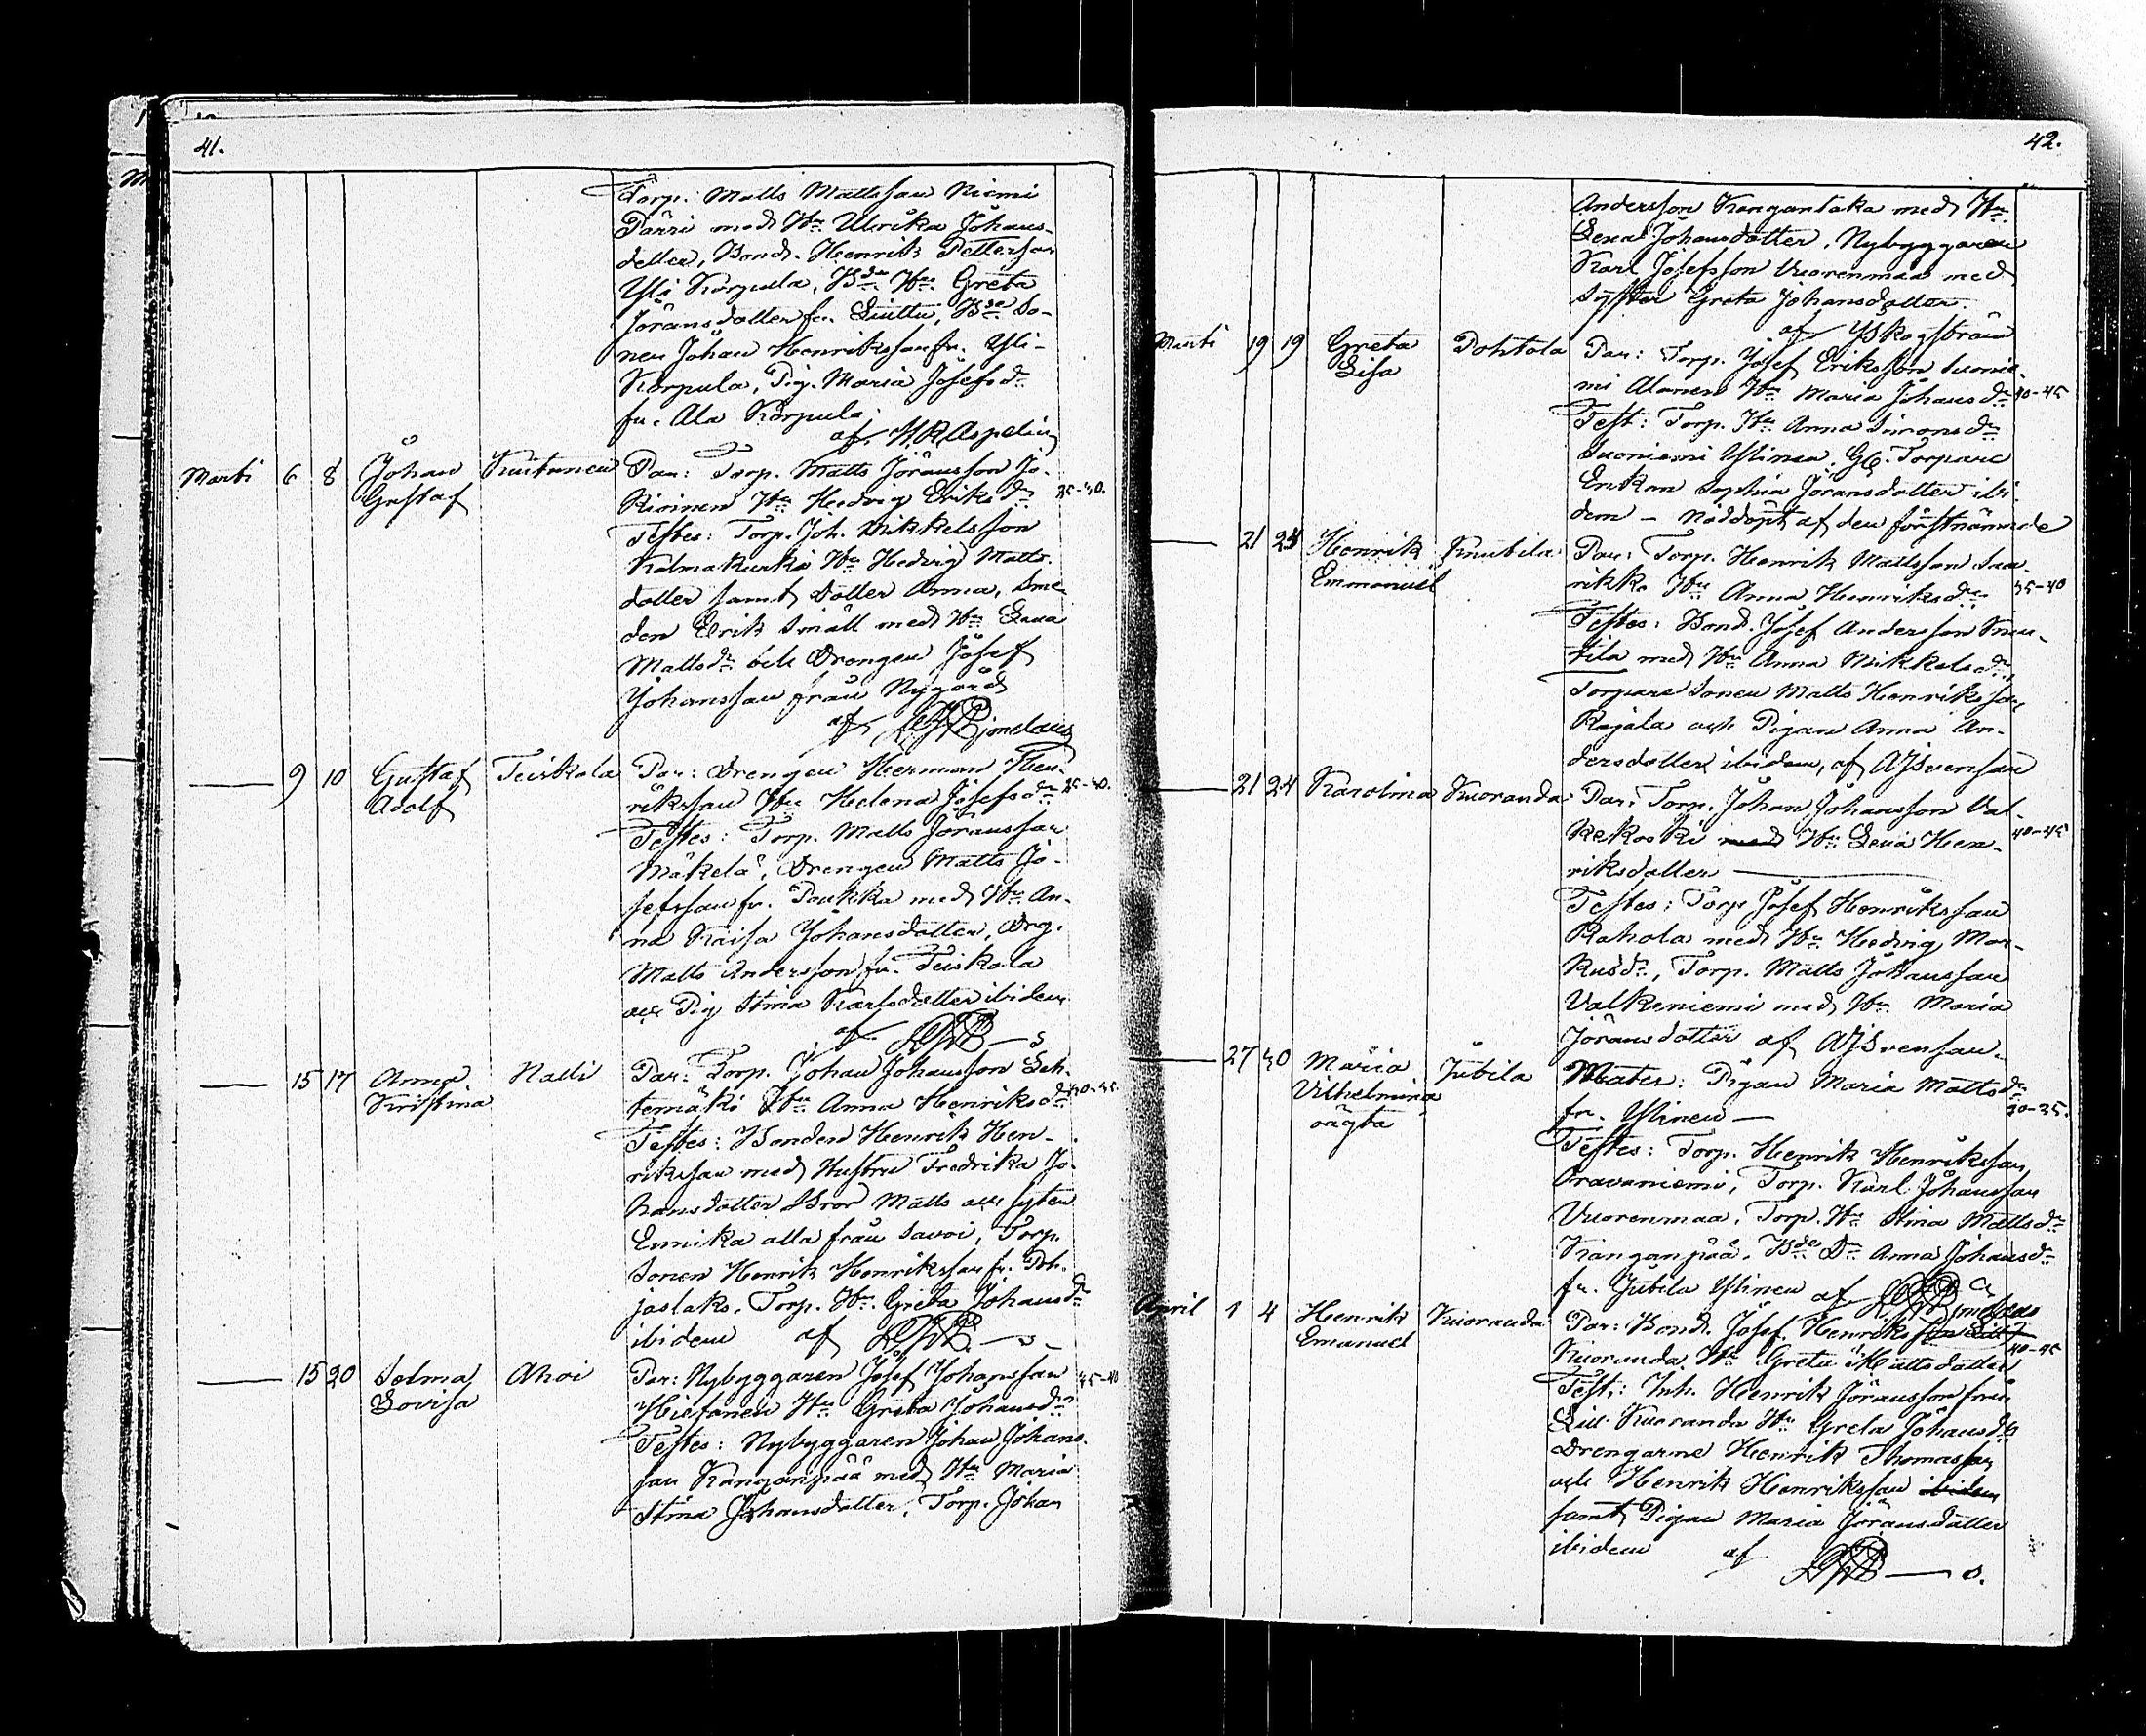 41.
Torp: Matts Mattsson Niemi
Pärri med Hu Ulrika Johans-
dotter, Bond. Henrik Pettersson
Yli Korpula, Bde Hu Greta
Jöransdotter fr. Liuttu, Bde So-
nen Johan Henriksson fr. Yli-
Korpula, Pig. Maria Josefsdr
fr. Ala Korpula
af H R Aspelin
Marti 6 8 Johan Gustaf Kuitunen Par: Torp. Matts Jöransson Jo-
kioinen Hu Hedvig Eriksdr 35-40.
Testes: Torp. Joh. Mikkelsson
Kalmakurki Hu Hedvig Matts-
dotter samt dotter Anna, Sme-
den Erik Smäll med Hu Lena
Mattsdr och Drengen Josef
Johansson från Nygård
af
— 9 10 Gustaf Adolf Teiskola Par: Drengen Herman Hen-
riksson Hu Helena Josefsdr 25-30.
Testes: Torp. Matts Jöransson
Mäkelä, Drengen Matts Jo-
sefsson fr. Poukka med Hu An-
na Kaisa Johansdotter, Drg.
Matts Andersson fr. Teiskola
och Pig Stina Karlsdotter ibidem
af
— 15 17 Anna Kristina Nalli Par: Torp. Johan Johansson Leh-
temäki Hu Anna Henriksdr
Testes: Bonden Henrik Hen-
riksson med Hustru Fredrika Jo-
hansdotter Bror Matts och syster
Ennika alla från Savoi, Torp.
Sonen Henrik Henriksson fr. Poh-
jaslaks, Torp. Hu Greta Johansdr
ibidem af
— 15 20 Selma Lovisa Ahoi Par: Nybyggaren Josef Johansson
Hietanen Hu Greta Johansdr 35-40
Testes: Nybyggaren Johan Johans-
son Kanganpää med Hu Maria
Stina Johansdotter, Torp. Johan
42.
Andersson Kangantaka med Hu
Lena Johansdotter, Nybyggaren
Karl Josefsson Vuorenmaa med
syster Greta Johansdotter.
af Skogström
Marti 19 19 Greta Lisa Pohtola Par: Torp. Josef Eriksson Suonie-
mi Alanen Hu Maria Johansdr 40-45
Test: Torp. Hu Anna Simonsdr
Suoniemi Ylinen, Gl. Torpare
Enkan Sophia Jöransdotter ibi-
dem — Nöddöpt af den förstnämnde
— 21 24 Henrik Emmanuel Knuutila Par: Torp. Henrik Mattsson Saa-
rikko Hu Anna Henriksdr 35-40
Testes: Bond. Josef Andersson Knuu-
tila med Hu Anna Mikkelsdr,
Torpare Sonen Matts Henriksson
Rajala och Pigan Anna An-
dersdotter ibidem, af A J Svensson
— 21 24 Karolina Kuoranda Par: Torp. Johan Johansson Val-
kekoski med Hu Lena Hen- 40-45
riksdotter —
Testes: Torp Josef Henriksson
Rahola med Hu Hedvig Mar-
kusdr, Torp. Matts Johansson
Valkeniemi med Hu Maria
Jöransdotter af A J Svensson.
— 27 30 Maria Vilhelmina oägta Jutila Mater: Pigan Maria Mattsdr
fr. Ylinen — 30-35.
Testes: Torp. Henrik Henriksson
Oravaniemi, Torp. Karl Johansson
Vuorenmaa, Torp. Hu Stina Mattsdr
Kanganpää, Bde Dr Anna Johansdr
fr. Jutila Ylinen af
April 1 4 Henrik Emanuel Kuoranda Par: Bond. Josef Henriksson
Kuoranda Hu Greta Mattsdotter 40-45
Test: Inh. Henrik Jöransson från
Lill Kuoranda Hu Greta Johansdr
Drengarne Henrik Thomasson
och Henrik Henriksson ibidem
samt Pigan Maria Jöransdotter
ibidem af